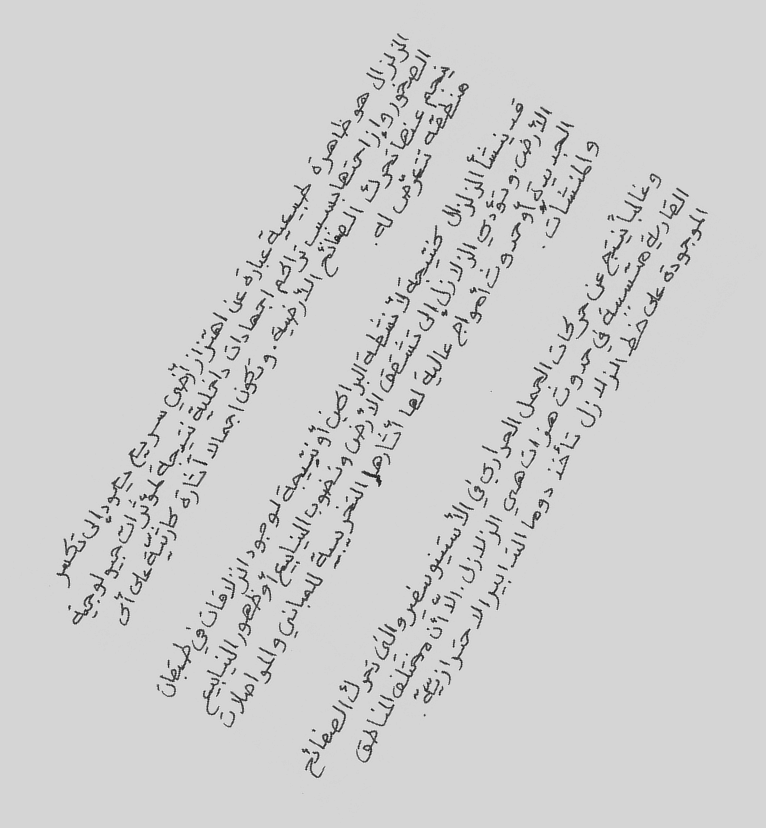 الزلزال هو ظاهرة طبيعية عبارة عن اهتزاز أرضي سريع يعود إلى تكسر
الصخور وإزاحتها بسبب تراكم اجهادات داخلية نتيجة لمؤثرات جيولوجية
ينجم عنها تحرك الصفائح الأرضية. وتكون اجمالا آثاره كارثية على أي
منطقة تتعرّض له.
قد ينشأ الزلزال كنتيجة لأنشطة البراكين أو نتيجة لوجود انزلاقات في طبقات
الأرض. وتؤدي الزلازل إلى تشقق الأرض ونضوب الينابيع أو ظهور الينابيع
الجديدة أو حدوث أمواج عالية لها آثارها التخريبية للمباني والمواصلات
والمنشآت.
وغالبا ينتج عن حركات الحمل الحراري في الأستينوسفير والتي تحرك الصفائح
القارية متسببة في حدوث هزات هي الزلازل. الا أنّ مختلف المناطق
الموجودة على خط الزلازل تأخذ دوما التدابير الاحترازيّة.